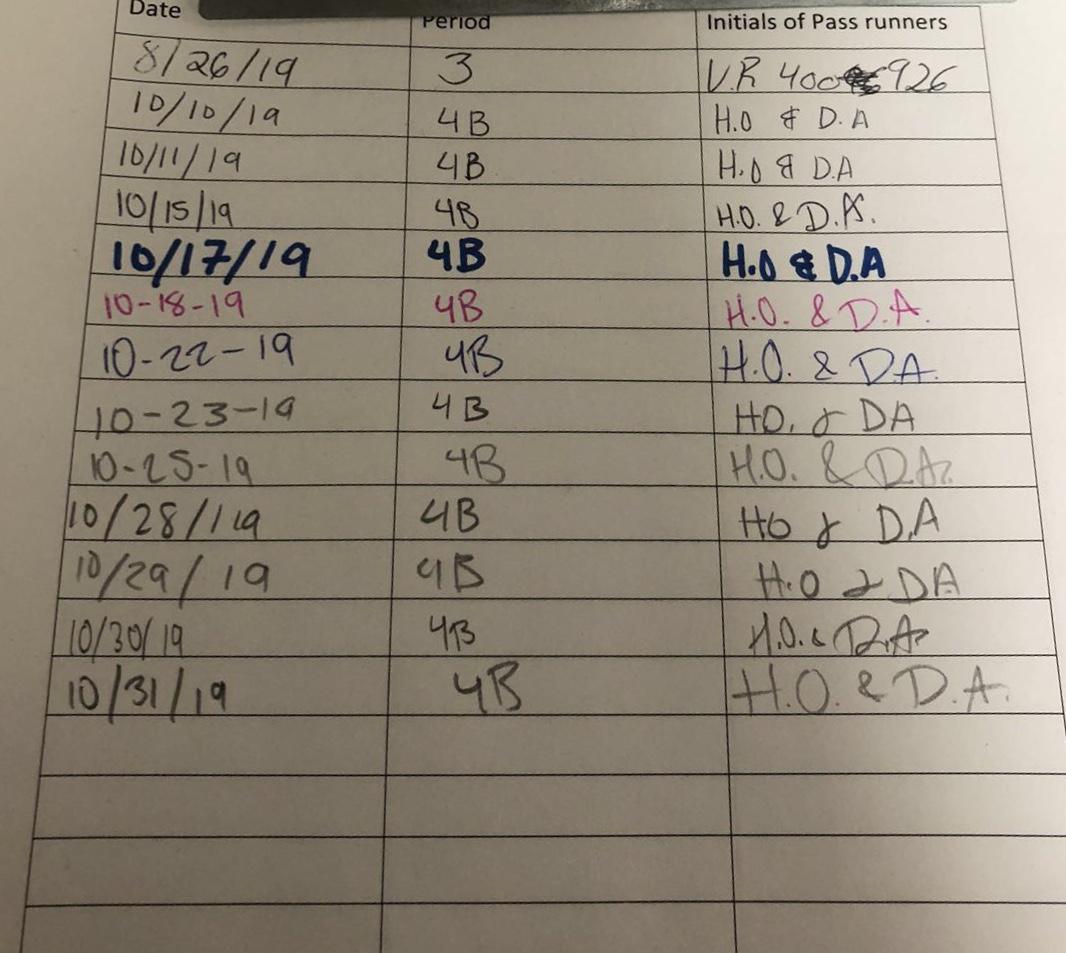 Date Period Initials of Pass runners
8/26/19 3 V.R 400 926
10/10/19 4B H.O & D.A
10/11/19 4B H.O & D.A
10/15/19 4B H.O. & D.A.
10/17/19 4B H.O & D.A
10-18-19 4B H.O. & D.A.
10-22-19 4B H.O. & D.A.
10-23-19 4B HO. & DA
10-25-19 4B H.O. & D.A.
10/28/19 4B HO & D.A
10/29/19 4B H.O & DA
10/30/19 4B H.O. & D.A.
10/31/19 4B H.O. & D.A.